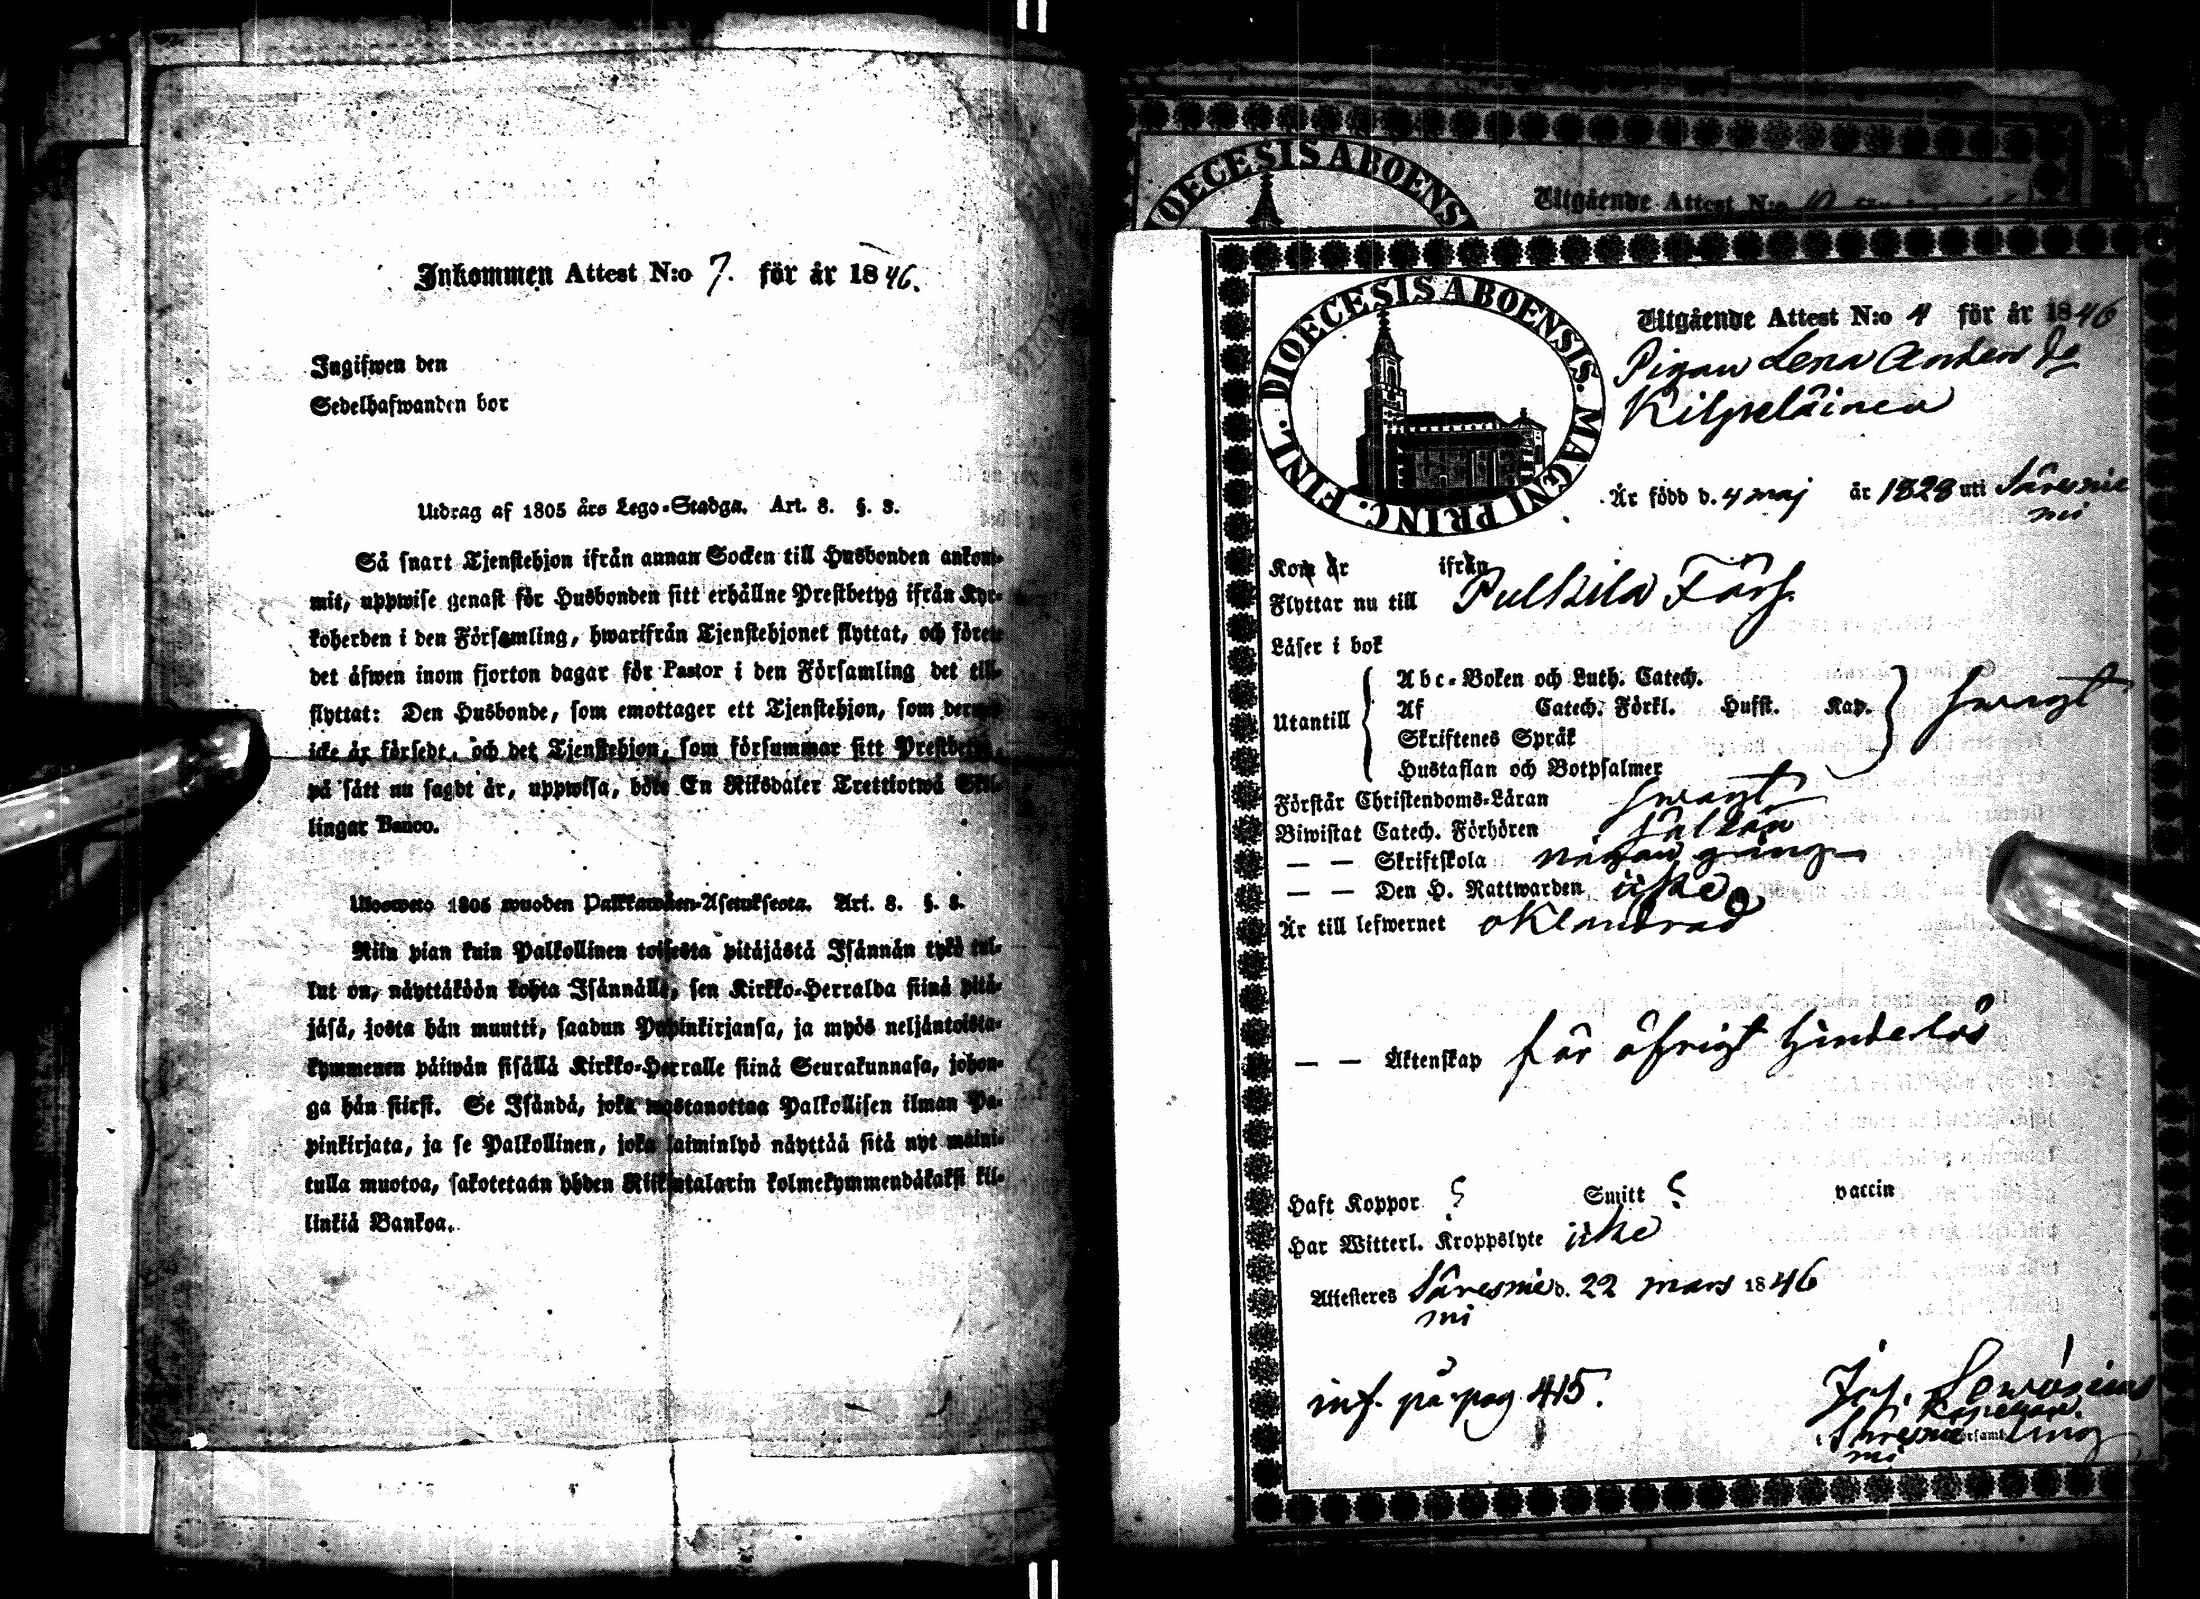 Inkommen Attest N:o 7. för år 1846.
Ingifwen den
Sedelhafwanden bor
Utdrag af 1805 års Lego-Stadga. Art. 8. §. 8.
Så snart Tjenstehjon ifrån annan Socken till Husbonden ankom-
mit, uppwise genast för Husbonden sitt erhållne Prestbetyg ifrån Kyr-
koherden i den Församling, hwarifrån Tjenstehjonet flyttat, och förete
det äfwen inom fjorton dagar för Pastor i den Församling det till-
flyttat: Den Husbonde, som emottager ett Tjenstehjon, som dermed
icke är försedt, och det Tjenstehjon, som försummar sitt Prestbetyg,
på sätt nu sagdt är, uppwisa, böte En Riksdaler Trettiotwå Skil-
lingar Banco.
Ulosweto 1805 wuoden Palkkawäen-Asetuksesta. Art. 8. §. 8.
Niin pian kuin Palkollinen toisesta pitäjästä Isännän tykö tul-
lut on, näyttäköön kohta Isännälle, sen Kirkko-Herralda siinä pitä-
jäsä, josta hän muutti, saadun Papinkirjansa, ja myös neljäntoista-
kymmenen päiwän sisällä Kirkko-Herralle siinä Seurakunnasa, johon-
ga hän siirsi. Se Isändä, joka wastanottaa Palkollisen ilman Pa-
pinkirjata, ja se Palkollinen, joka laiminlyö näyttää sitä nyt maini-
tulla muotoa, sakotetaan yhden Riikintalarin kolmekymmendäkaksi kil-
linkiä Bankoa.
DIOECESIS ABOENS
Utgående Attest N:o
DIOECESIS ABOENSIS. MAGNI PRINC. FINL.
Utgående Attest N:o 4 för år 1846
Pigan Lena Anders dr
Kilpeläinen
Är född d. 4 maj år 1828 uti Säresnie
mi
Kom år ifrån
Flyttar nu till Pulkila Förs.
Läser i bok
Utantill
Abc-Boken och Luth. Catech.
Af Catech. Förkl. Husst. Kap.
Skriftenes Språk
Hustaflan och Botpsalmer
swagt
Förstår Christendoms-Läran swagt
Biwistat Catech. Förhören sällan
— — Skriftskola någon gång
— — Den H. Nattwarden icke
Är till lefwernet oklandrad
— — Äktenskap för öfrigt hinderlös
Haft Koppor ? Smitt ? vaccin
Har Witterl. Kroppslyte icke
Attesteres Säresnie d. 22 mars 1846
mi
inf. på pag 415.